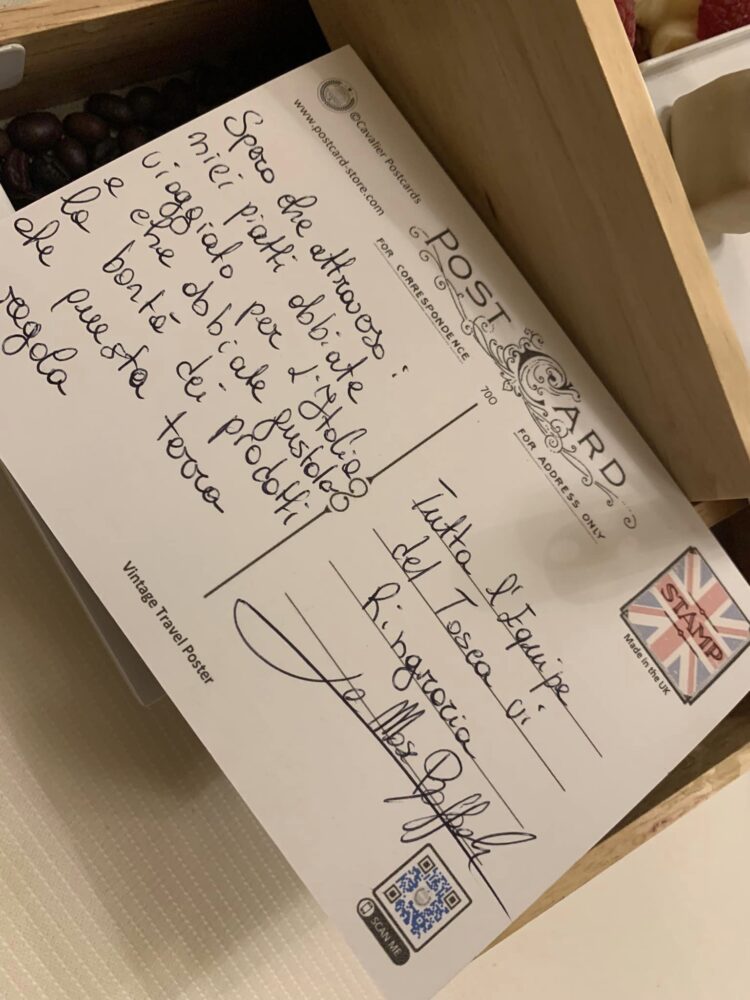 ©Cavalier Postcards
www.postcard-store.com
POST CARD
FOR CORRESPONDENCE
FOR ADDRESS ONLY
700
Spero che attraverso i
miei piatti abbiate
viaggiato per l'Italia
e che abbiate gustato
la bontà dei prodotti
che questa terra
regala
Tutta l'Equipe
del Tosca vi
Ringrazia
STAMP
Made in the UK
Vintage Travel Poster
SCAN ME